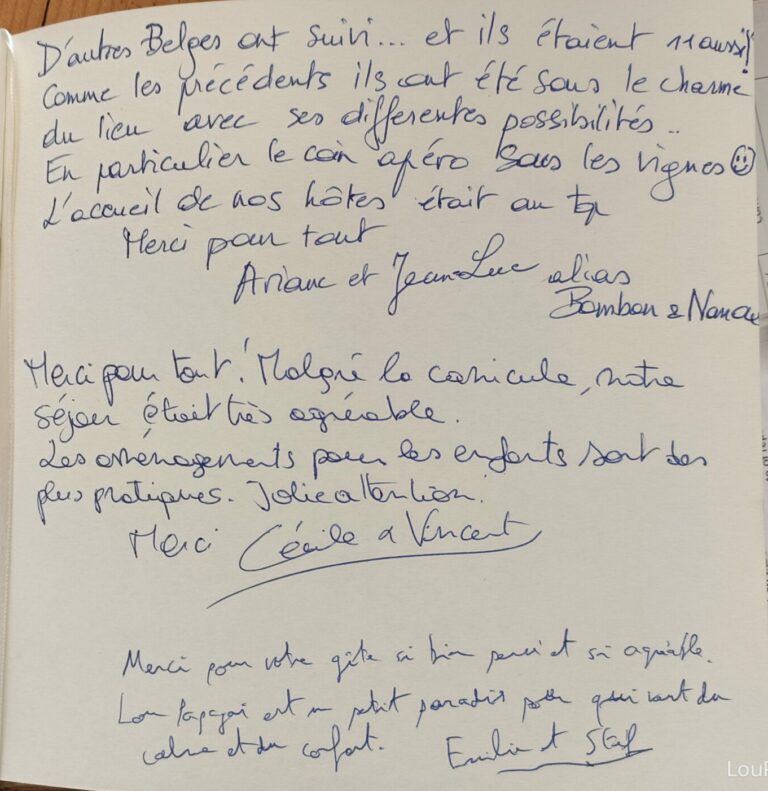 D'autres Belges ont suivi... et ils étaient 11 aussi!
Comme les précédents ils ont été sous le charme
du lieu avec ses differentes possibilités..
En particulier le coin apéro sous les vignes
L'accueil de nos hôtes était au top
Merci pour tout
Ariane et Jean-Luc alias
Bombon &
Merci pour tout! Malgré la canicule, notre
séjour était très agréable.
Les aménagements pour les enfants sont des
plus pratiques. Jolie attention!
Merci Cécile & Vincent
Merci pour votre gîte si bien pensé et si agréable.
Lou Papagai est un petit paradis pour qui veut du
calme et du confort. Emilie et Stef
LouP